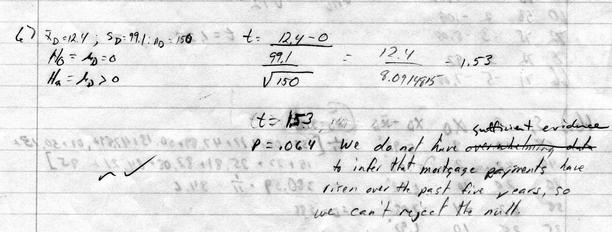 6) x̄D = 12.4 ; SD = 99.1 ; nD = 150
t = 12.4 - 0 / (99.1 / √150) = 12.4 / 8.0914815 = 1.53
H0 = μD = 0
Ha = μD > 0
t = 1.53
sufficient evidence
P = .064 We do not have overwhelming data
to infer that mortgage payments have
risen over the past five years, so
we can't reject the null.